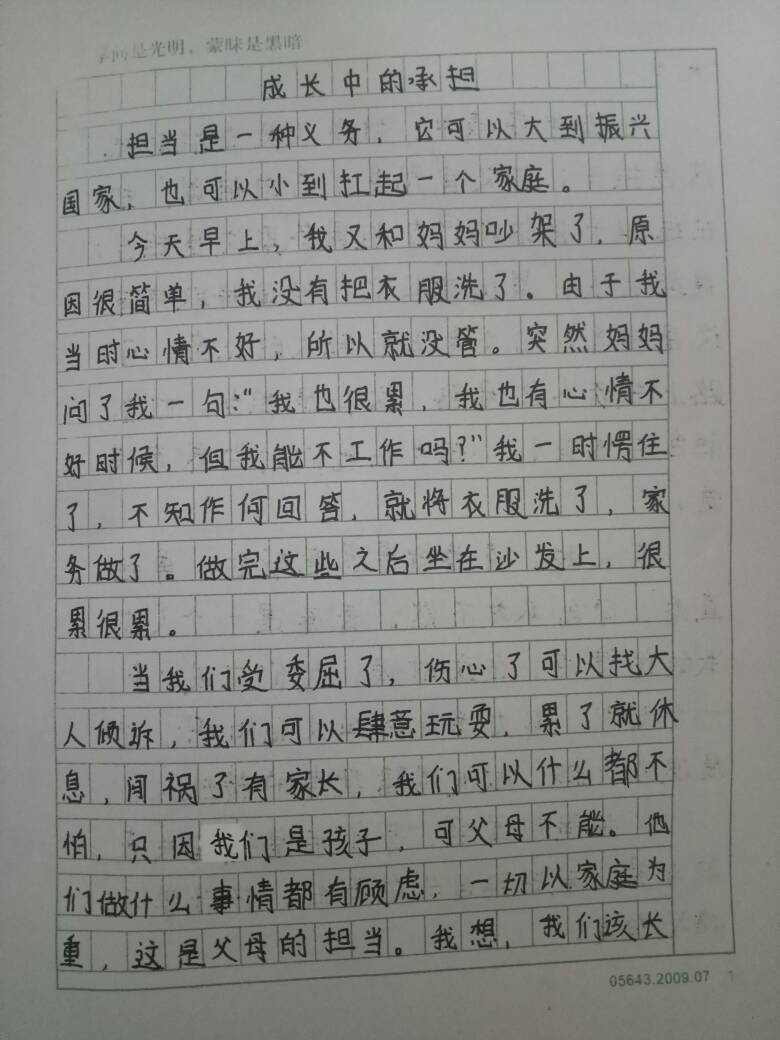 学问是光明，蒙昧是黑暗
成长中的承担
担当是一种义务，它可以大到振兴
国家，也可以小到扛起一个家庭。
今天早上，我又和妈妈吵架了，原
因很简单，我没有把衣服洗了。由于我
当时心情不好，所以就没管。突然妈妈
问了我一句："我也很累，我也有心情不
好时候，但我能不工作吗？"我一时愣住
了，不知作何回答，就将衣服洗了，家
务做了。做完这些之后坐在沙发上，很
累很累。
当我们受委屈了，伤心了可以找大
人倾诉，我们可以肆意玩耍，累了就休
息，闯祸了有家长，我们可以什么都不
怕，只因我们是孩子，可父母不能。他
们做什么事情都有顾虑，一切以家庭为
重，这是父母的担当。我想，我们该长
05643.2009.07 1